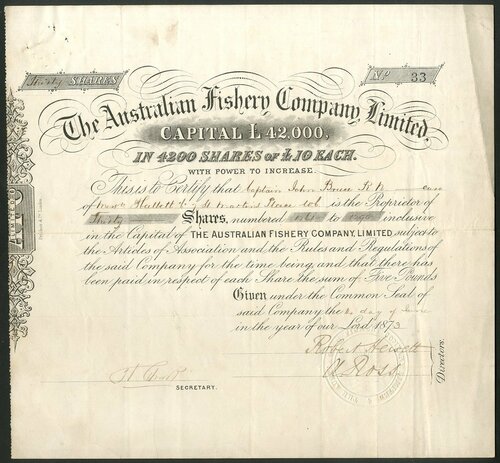 Thirty SHARES
No 33
The Australian Fishery Company, Limited,
CAPITAL £ 42,000,
IN 4200 SHARES OF £10 EACH.
WITH POWER TO INCREASE.
This is to Certify that Captain John Bruce R. N. care
of St Martins Place is the Proprietor of
Thirty Shares, numbered to inclusive
in the Capital of THE AUSTRALIAN FISHERY COMPANY, LIMITED subject to
the Articles of Association and the Rules and Regulations of
the said Company for the time being, and that there has
been paid in respect of each Share the sum of Five Pounds
Given under the Common Seal of
said Company the day of June
in the year of our Lord 1873
Robert Hewett
A. Ross
Directors.
SECRETARY.
LIMITED